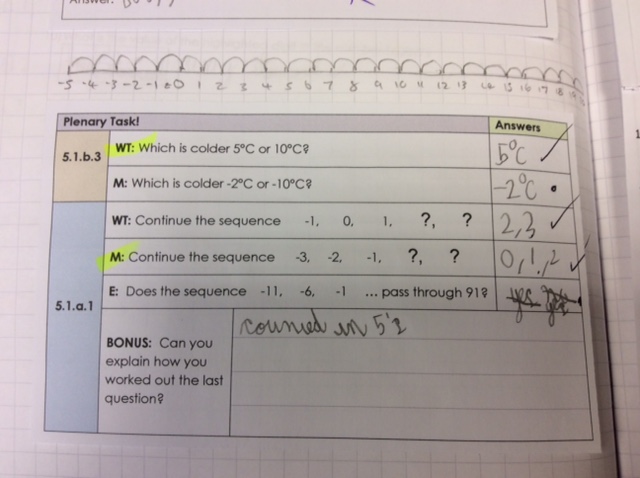 Answer:
-5 -4 -3 -2 -1 0 1 2 3 4 5 6 7 8 9 10 11 12 13 14 15 16 17 18
Plenary Task! Answers
5.1.b.3 WT: Which is colder 5°C or 10°C? 5°C
M: Which is colder -2°C or -10°C? -2°C
WT: Continue the sequence -1, 0, 1, ?, ? 2,3
M: Continue the sequence -3, -2, -1, ?, ? 0,1,2
5.1.a.1 E: Does the sequence -11, -6, -1 ... pass through 91? yes
counted in 5's
BONUS: Can you
explain how you
worked out the last
question?
1